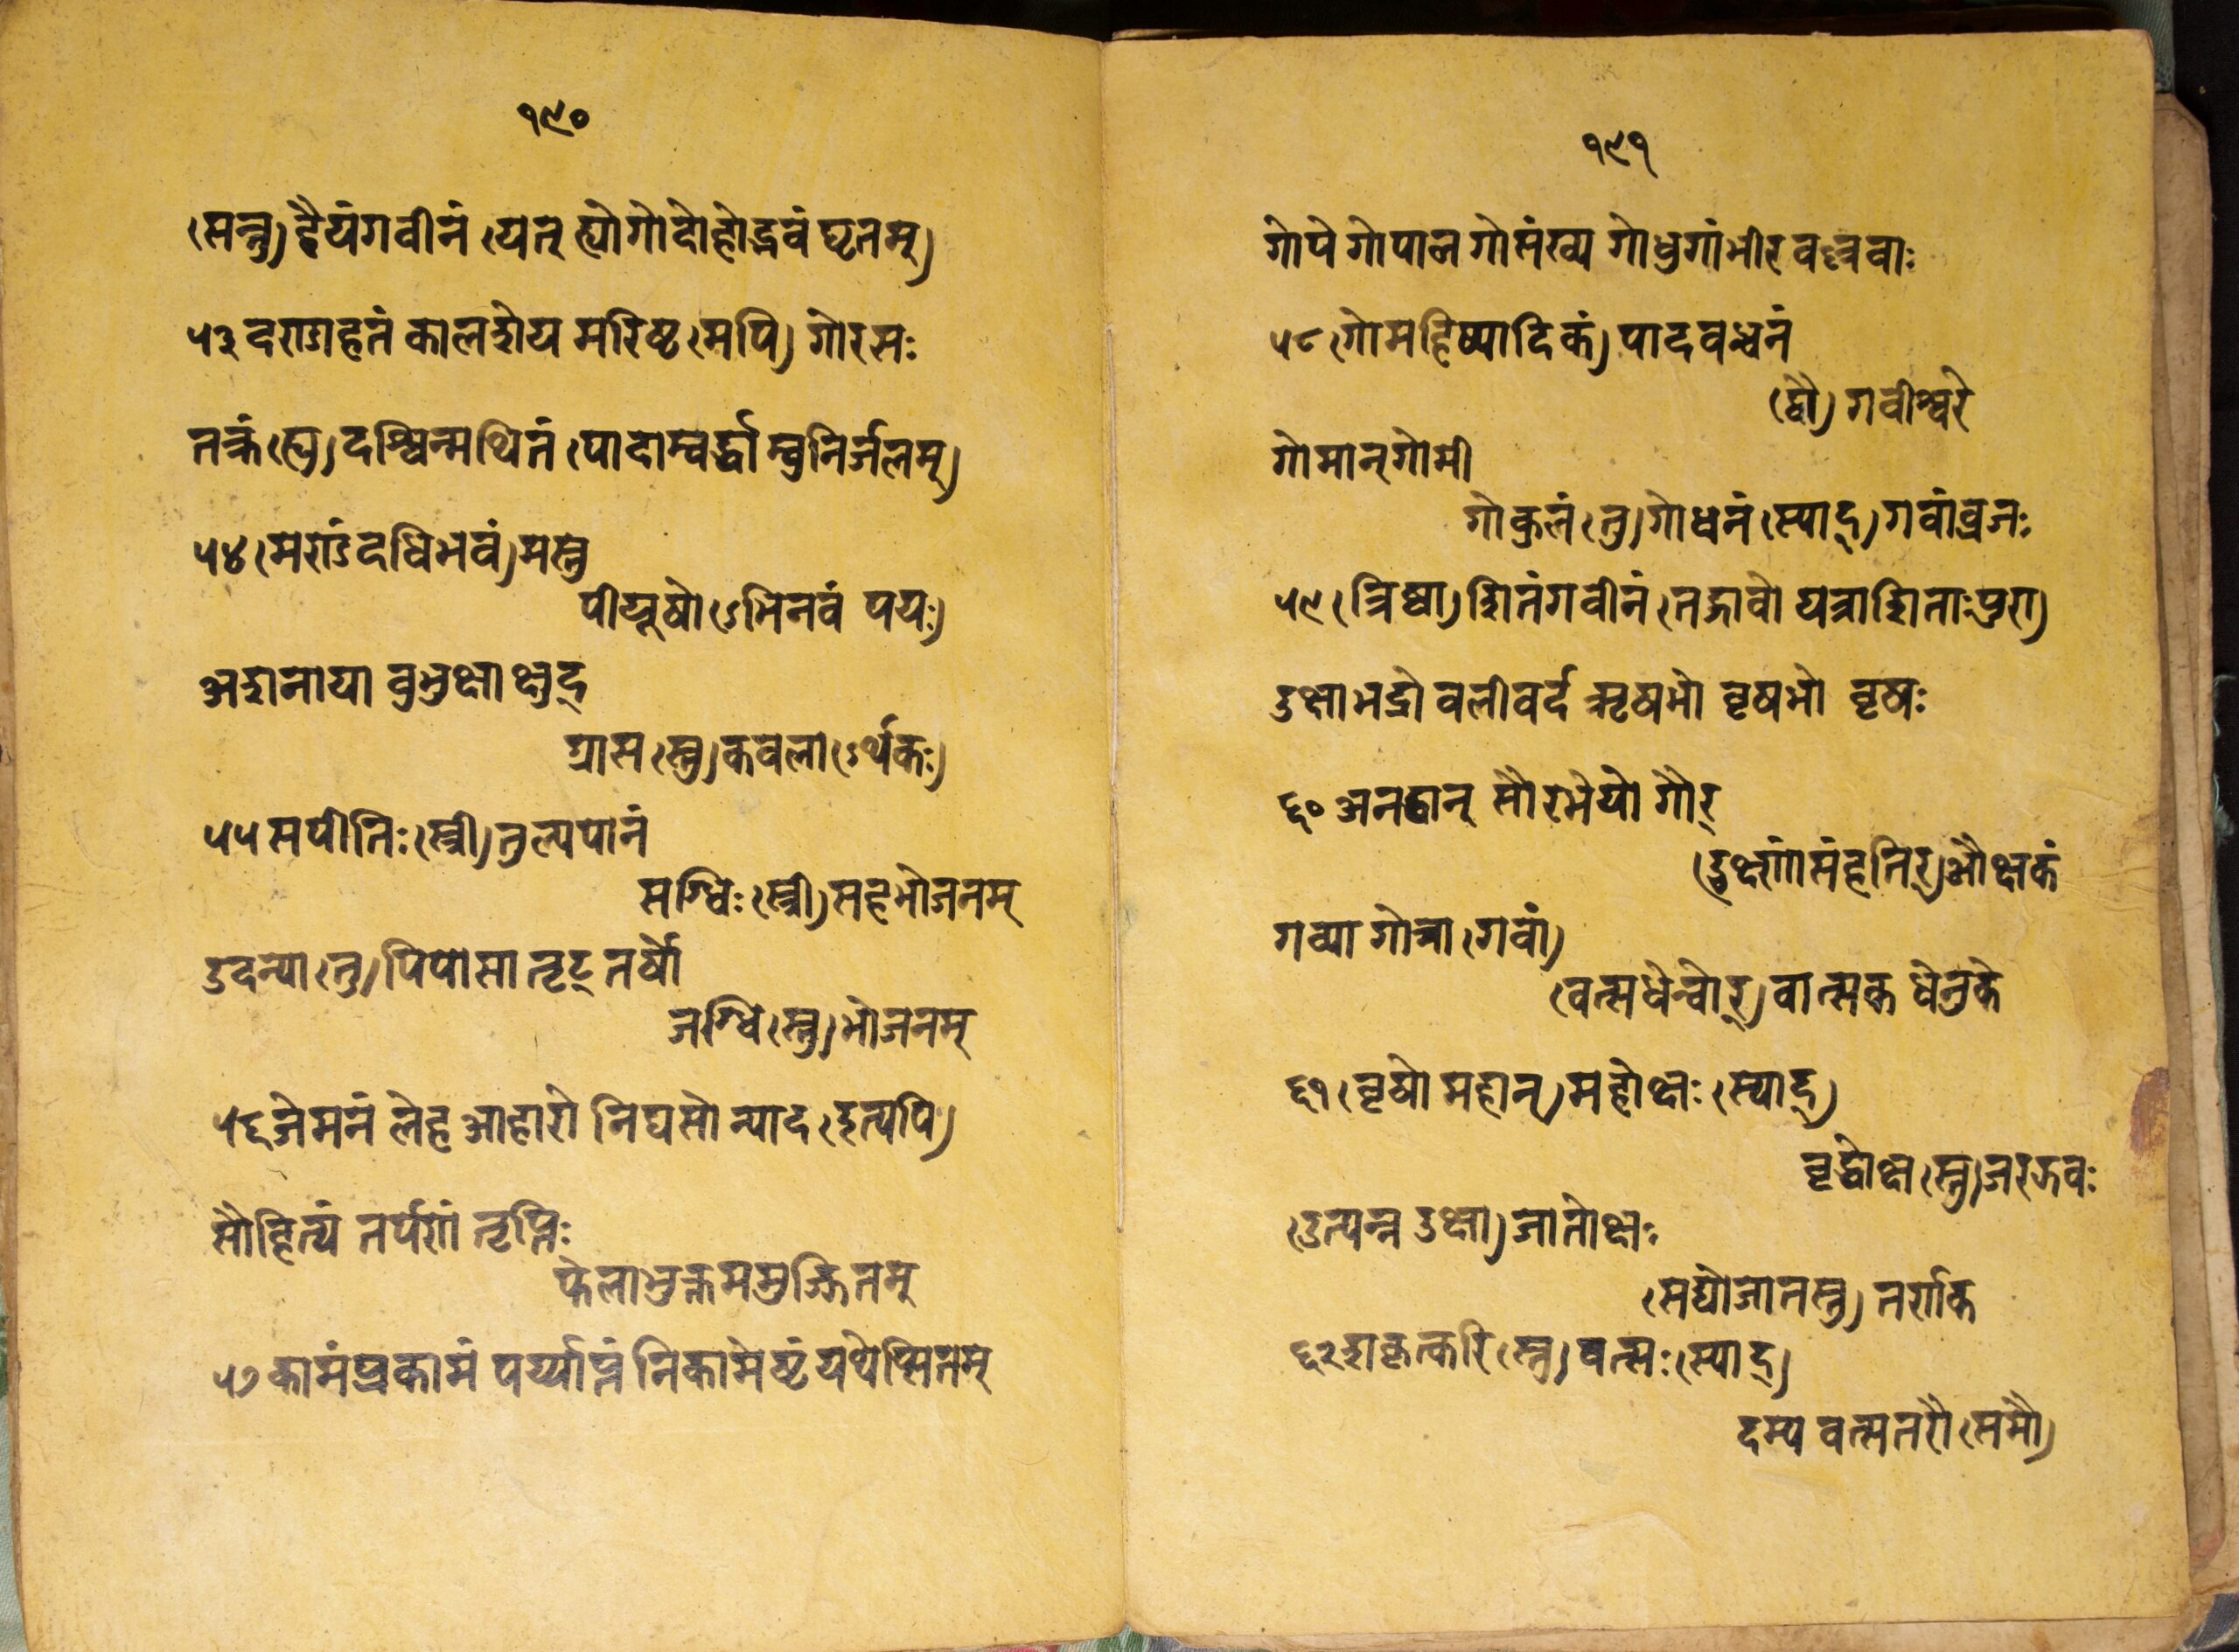 १९०
(सत्तु) हैयंगवीनं (यत् ह्योगोदोहोद्भवं घृतम्)
५३ दण्डाहतं कालशेय मरिष्ट (मपि) गोरसः
तक्रं (ह्यु) दश्विन्मथितं (पादाम्बर्द्धाम्बुनिर्जलम्)
५४ (मण्डं दधिभवं) मस्तु
पीयूषो (ऽभिनवं पयः)
अशनाया बुभुक्षा क्षुद्
ग्रास (स्तु) कवला (ऽर्थकः)
५५ सपीतिः (स्त्री) तुल्यपानं
सग्धिः (स्त्री) सहभोजनम्
उदन्या (तु) पिपासा तृट् तर्षो
जग्धि (स्तु) भोजनम्
५६ जेमनं लेह आहारो निघसो न्याद (इत्यपि)
सौहित्यं तर्पणं तृप्तिः
फेला भुक्तसमुज्झितम्
५७ कामं प्रकामं पर्य्याप्तं निकामेष्टं यथेप्सितम्
१९१
गोपे गोपाल गोसंख्य गोधुगाभीर वल्लवाः
५८ (गोमहिष्यादिकं) पादवन्धनं
(द्वौ) गवीश्वरे
गोमान् गोमी
गोकुलं (तु) गोधनं (स्याद्) गवांव्रजः
५९ (त्रिष्वा) शितंगवीनं (तद्गावो यत्राशिताः पुरा)
उक्षा भद्रो वलीवर्द ऋषभो वृषभो वृषः
६० अनड्वान् सौरभेयो गौर्
(उक्ष्णां संहतिर्) औक्षकं
गव्या गोत्रा (गवां)
(वत्सधेन्वोर्) वात्सक धेनुके
६१ (वृषो महान्) महोक्षः (स्याद्)
वृद्धोक्ष (स्तु) जरद्गवः
(उत्पन्न उक्षा) जातोक्षः
(सद्योजातस्तु) तर्णक
६२ शकृत्करि (स्तु) वत्सः (स्याद्)
दम्य वत्सतरौ (समौ)